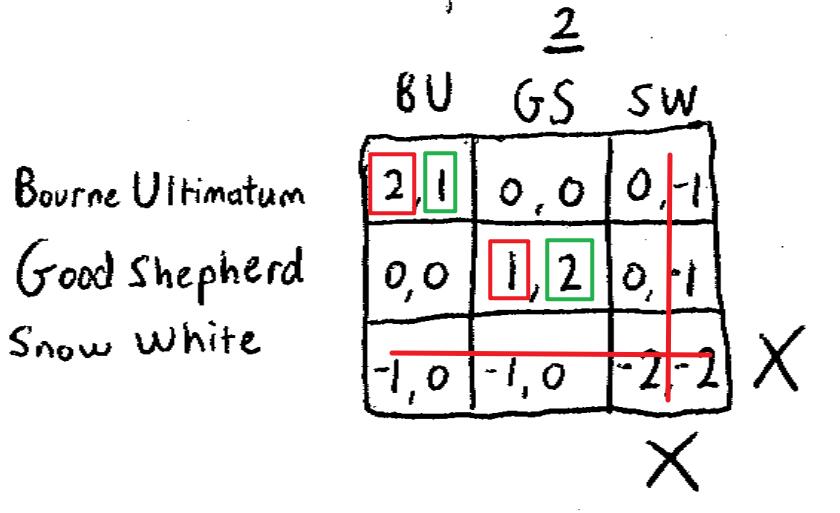 2
BU GS SW
Bourne Ultimatum 2,1 0,0 0,-1
Good Shepherd 0,0 1,2 0,-1
Snow White -1,0 -1,0 -2,-2 X
X